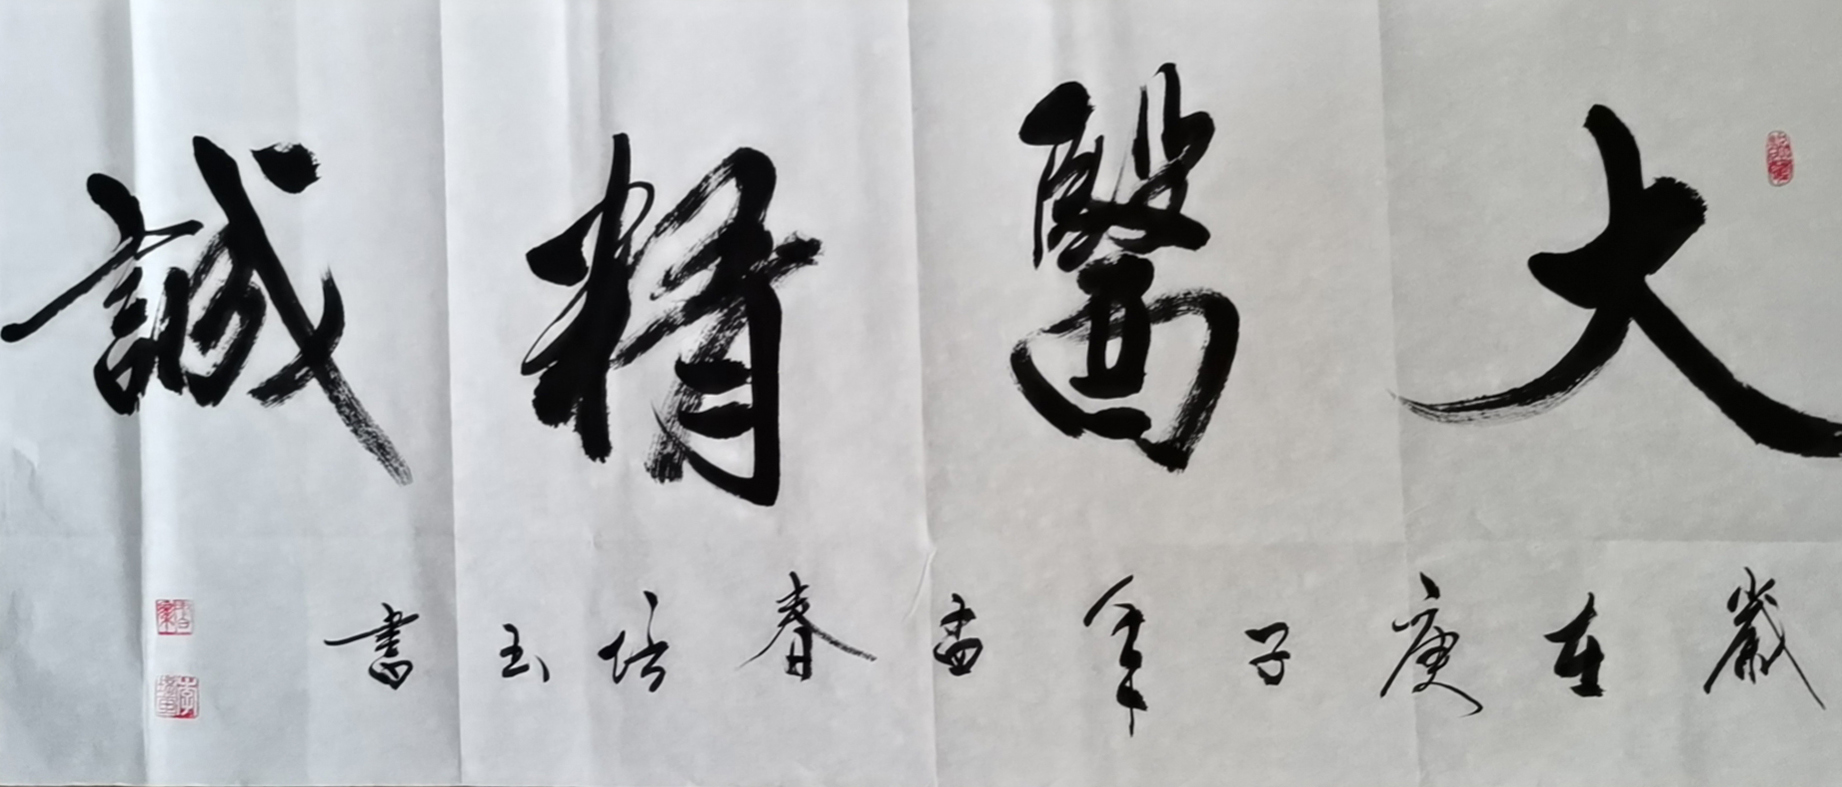 大醫精誠
歲在庚子年孟春培玉書